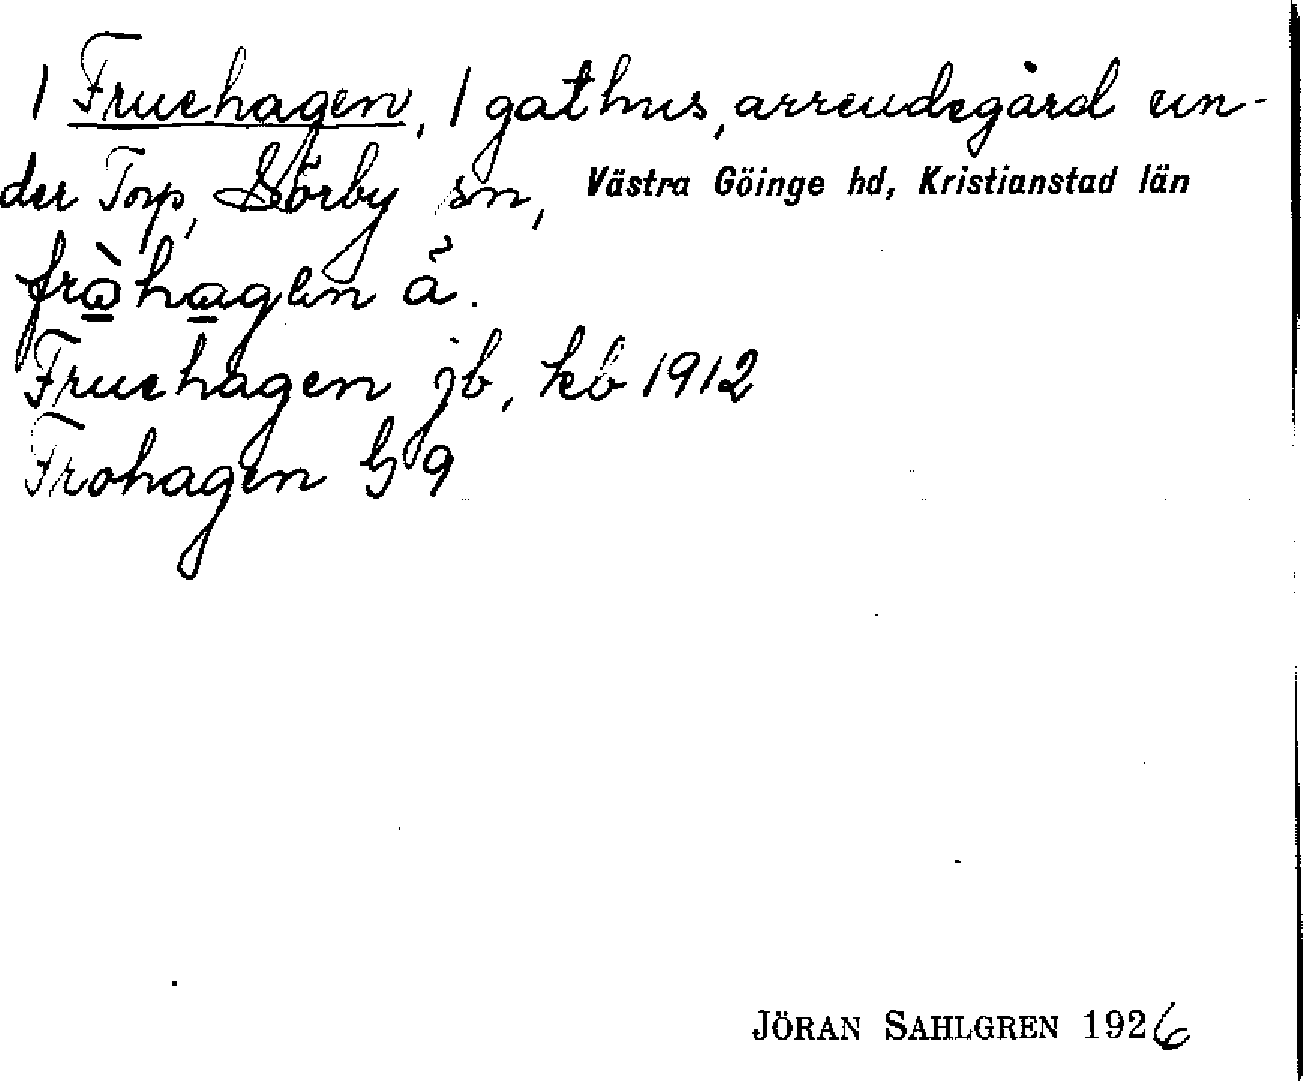 1 Fruehagen, 1 gathus, arrendegård un-
der Torp, Sörby sn, Västra Göinge hd, Kristianstad län
fràhagen å.
Fruehagen jb, kb 1912
Frohagen G 9
JÖRAN SAHLGREN 1926